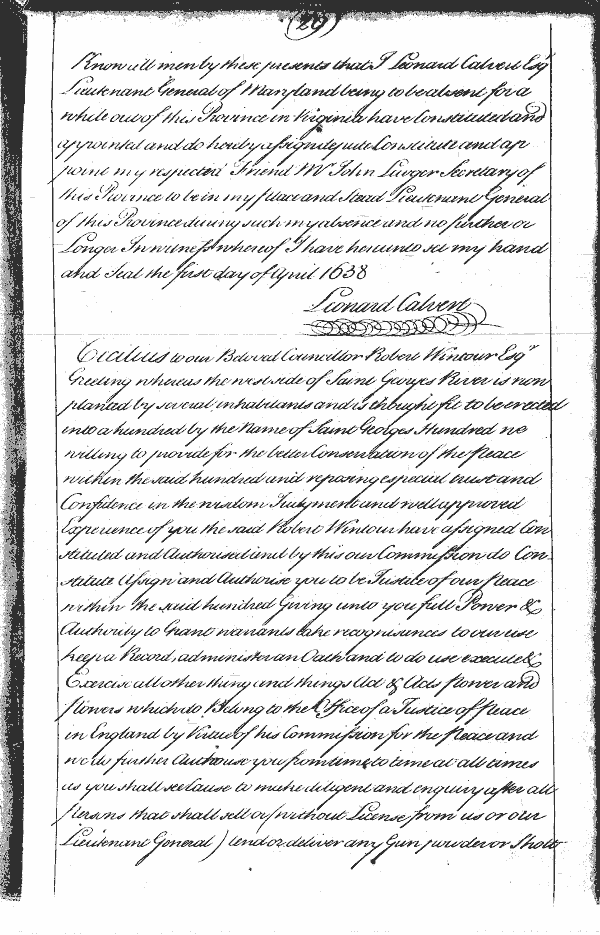 (29)
Know all men by these presents that I Leonard Calvert Esqr
Lieutenant General of Maryland being to be absent for a
while out of this Province in Virginia have Constituted and
appointed and do hereby assign depute Constitute and ap
point my respected Friend Mr John Lewger Secretary of
this Province to be in my place and Stead Lieutenant General
of this Province during such my absence and no further or
Longer In witness whereof I have hereunto set my hand
and Seal the first day of April 1638
Leonard Calvert
Cecilius to our Beloved Councillor Robert Wintour Esqr
Greeting whereas the west side of Saint Georges River is now
planted by several inhabitants and is thought fit to be erected
into a hundred by the Name of Saint Georges Hundred we
willing to provide for the better Conservation of the Peace
within the said hundred and reposing especial trust and
Confidence in the wisdom Judgment and well approved
Experience of you the said Robert Wintour have assigned Con
stituted and Authorised and by this our Commission do Con
stitute Assign and Authorise you to be Justice of our Peace
within the said hundred Giving unto you full Power &
Authority to Grant warrants take recognisances to our use
keep a Record, administer an Oath and to do use execute &
Exercise all other thing and things Act & Acts power and
powers which do Belong to the Office of a Justice of Peace
in England by Virtue of his Commission for the Peace and
we do further Authorise you from time to time at all times
as you shall see Cause to make diligent and enquiry after all
persons that shall sell or (without License from us or our
Lieutenant General) lend or deliver any Gun powder or Shott